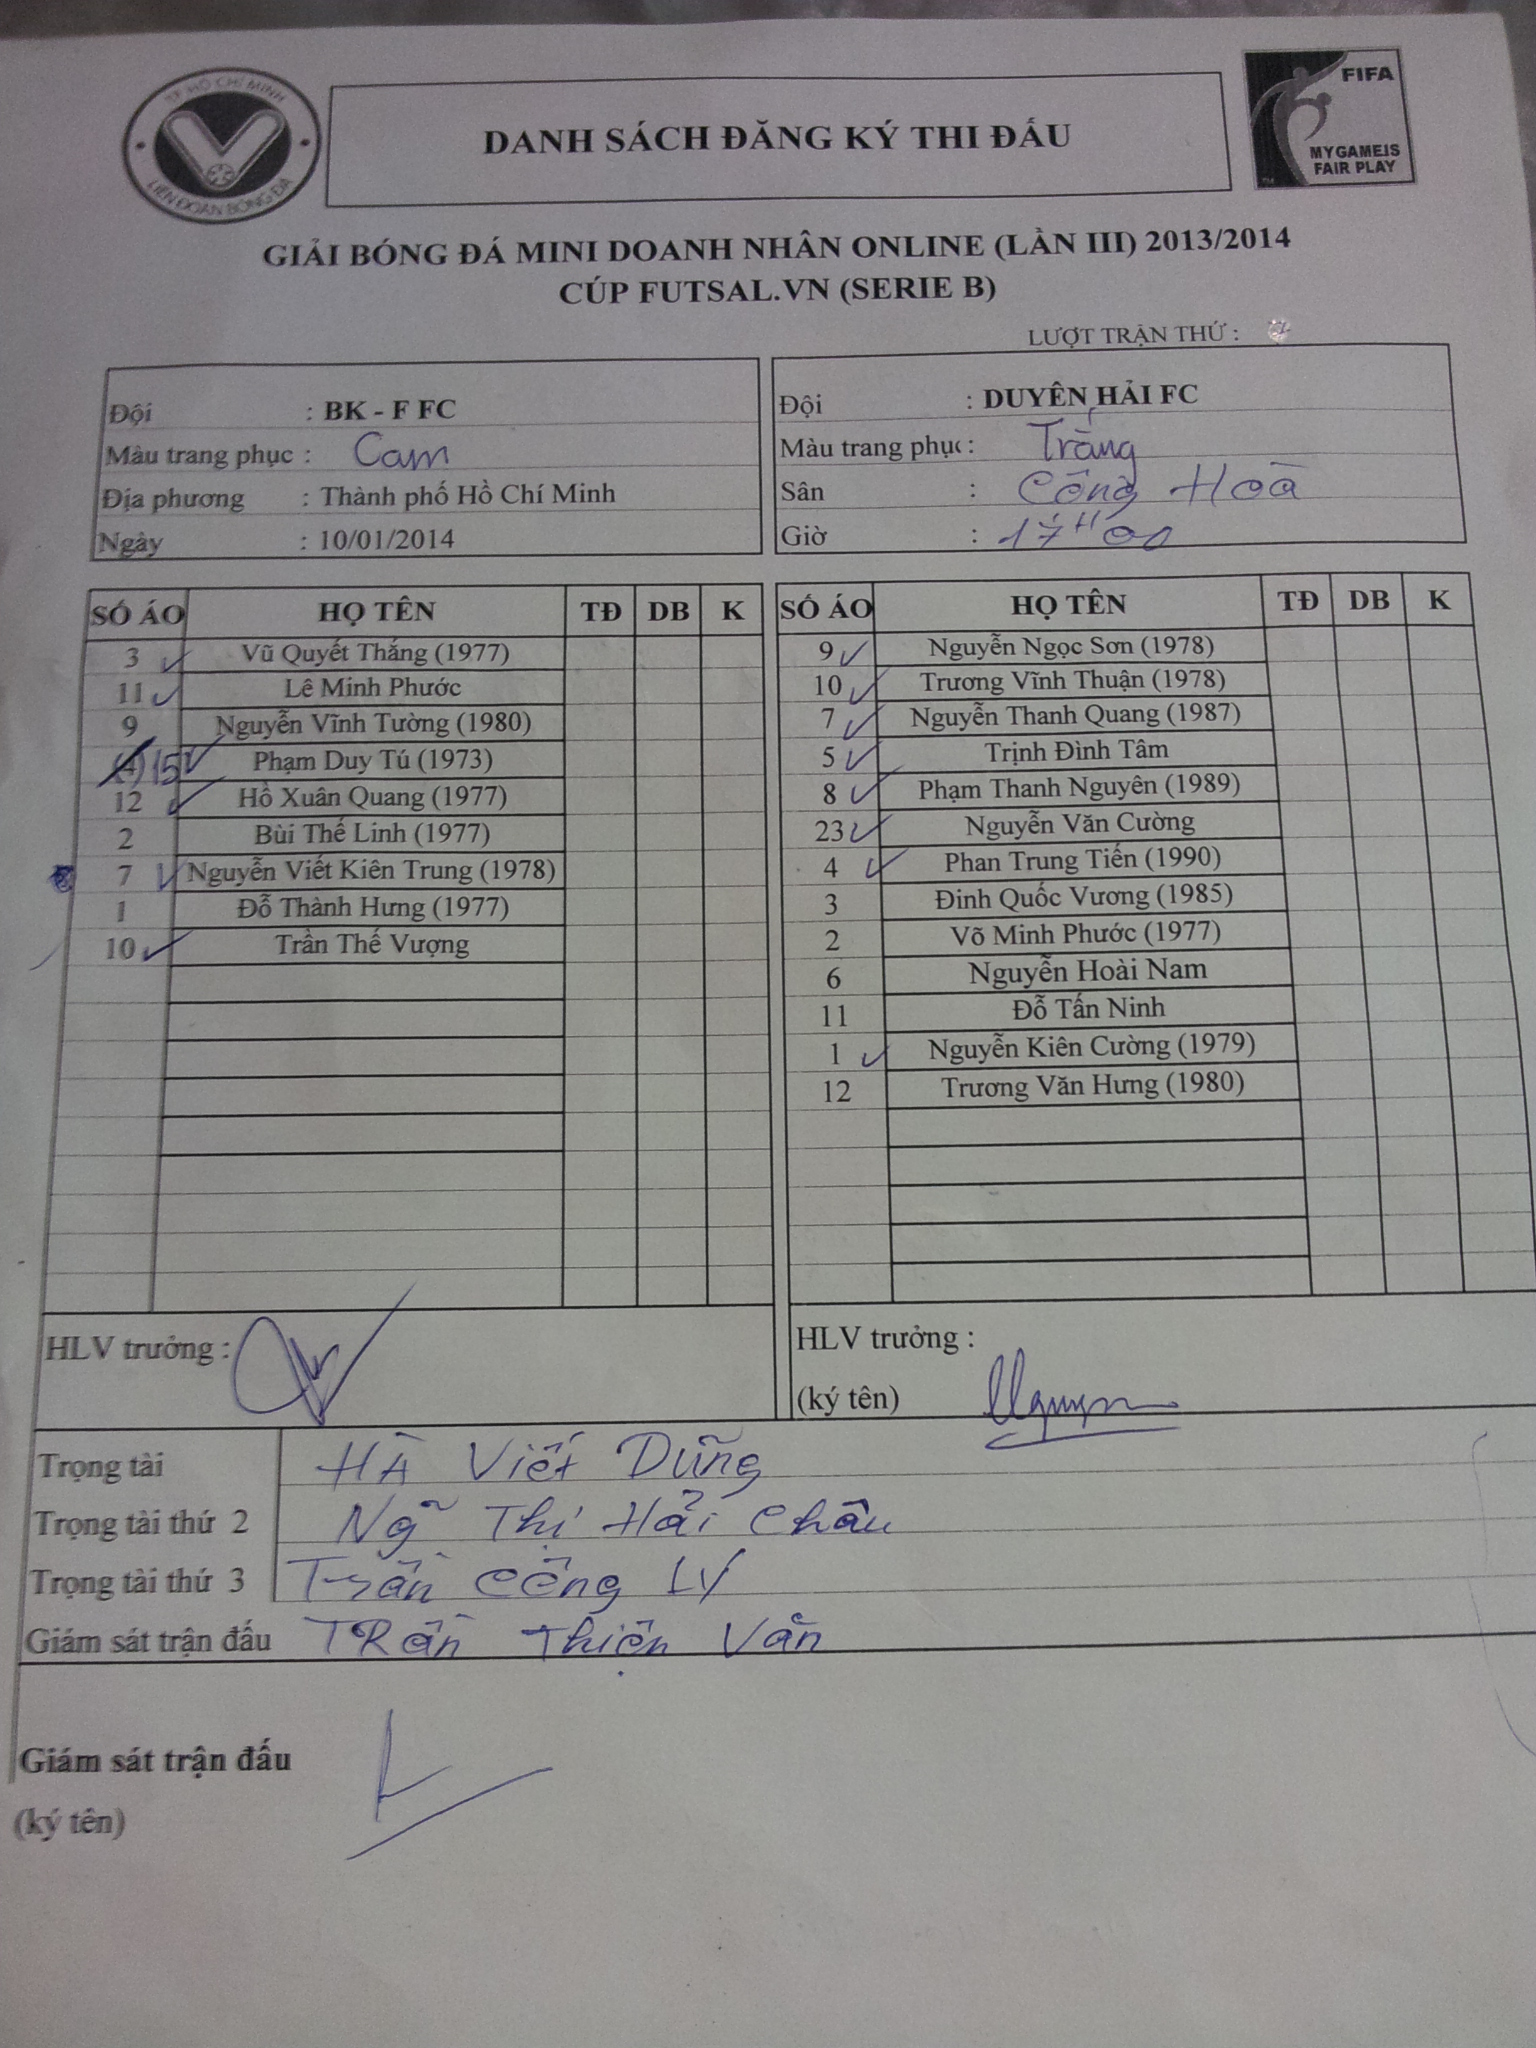 TP HỒ CHÍ MINH
LIÊN ĐOÀN BÓNG ĐÁ
DANH SÁCH ĐĂNG KÝ THI ĐẤU
FIFA
MY GAME IS
FAIR PLAY
GIẢI BÓNG ĐÁ MINI DOANH NHÂN ONLINE (LẦN III) 2013/2014
CÚP FUTSAL.VN (SERIE B)
LƯỢT TRẬN THỨ :
Đội : BK - F FC
Màu trang phục : Cam
Địa phương : Thành phố Hồ Chí Minh
Ngày : 10/01/2014
Đội : DUYÊN HẢI FC
Màu trang phục : Trắng
Sân : Cộng Hoà
Giờ : 17H00
SỐ ÁO HỌ TÊN TĐ DB K
3 Vũ Quyết Thắng (1977)
11 Lê Minh Phước
9 Nguyễn Vĩnh Tường (1980)
15 Phạm Duy Tú (1973)
12 Hồ Xuân Quang (1977)
2 Bùi Thế Linh (1977)
7 Nguyễn Viết Kiên Trung (1978)
1 Đỗ Thành Hưng (1977)
10 Trần Thế Vượng
SỐ ÁO HỌ TÊN TĐ DB K
9 Nguyễn Ngọc Sơn (1978)
10 Trương Vĩnh Thuận (1978)
7 Nguyễn Thanh Quang (1987)
5 Trịnh Đình Tâm
8 Phạm Thanh Nguyên (1989)
23 Nguyễn Văn Cường
4 Phan Trung Tiến (1990)
3 Đinh Quốc Vương (1985)
2 Võ Minh Phước (1977)
6 Nguyễn Hoài Nam
11 Đỗ Tấn Ninh
1 Nguyễn Kiên Cường (1979)
12 Trương Văn Hưng (1980)
HLV trưởng :
HLV trưởng :
(ký tên) Nguyen
Trọng tài Hà Viết Dũng
Trọng tài thứ 2 Ng~ Thị Hải Châu
Trọng tài thứ 3 Trần Công Lý
Giám sát trận đấu Trần Thiện Văn
Giám sát trận đấu
(ký tên)